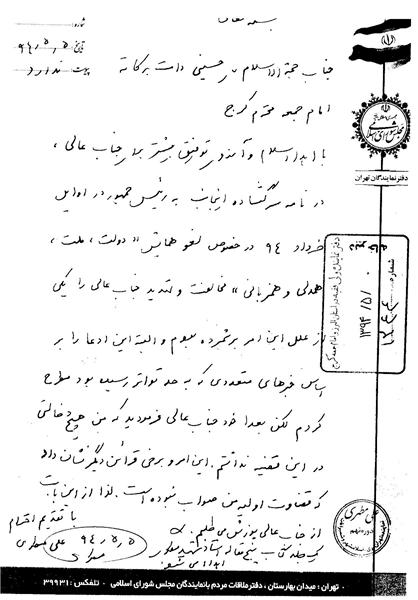 بسمه تعالی
شماره:
تاریخ: ۹۴/۵/۵
پیوست: ندارد
جمهوری اسلامی ایران
مجلس شورای اسلامی
دفتر نمایندگان تهران
جناب حجة الاسلام حسینی دامت برکاته
امام جمعه محترم کرج
با اهداء سلام و آرزوی توفیق بیشتر برای جناب عالی،
در نامه سرگشاده اینجانب به رئیس جمهور در اوایل
خرداد ۹۴ در خصوص لغو همایش «دولت، ملت،
همدلی و همزبانی» مخالفت و تهدید جناب عالی را یکی
از علل این امر برشمرده بودم و البته این ادعا را بر
اساس خبرهای متعددی که به حد تواتر رسیده بود مطرح
کردم لکن بعدا خود جناب عالی فرمودید که من هیچ دخالتی
در این قضیه نداشتم. این امر و برخی قرائن دیگر نشان داد
که قضاوت اولیه من صواب نبوده است. لذا از این بابت
از جناب عالی پوزش می طلبم.
یک جلد کتاب استاد شهید مطهری
اهدا می شود.
با تقدیم احترام
علی مطهری
۹۴/۵/۵
شماره
۱۳۹۴/۵/
علی مطهری
تهران: میدان بهارستان، دفتر ملاقات مردم با نمایندگان مجلس شورای اسلامی - تلفکس: ۳۹۹۳۱